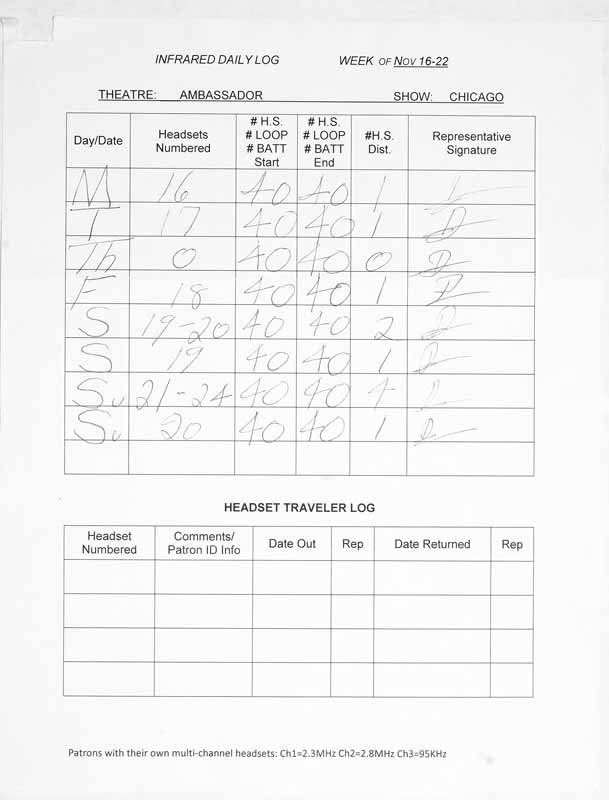 INFRARED DAILY LOG WEEK OF NOV 16-22
THEATRE: AMBASSADOR SHOW: CHICAGO
Day/Date Headsets Numbered # H.S. # LOOP # BATT Start # H.S. # LOOP # BATT End #H.S. Dist. Representative Signature
M 16 40 40 1
T 17 40 40 1
Th 0 40 40 0
F 18 40 40 1
S 19-20 40 40 2
S 19 40 40 1
Su 21-24 40 40 4
Su 20 40 40 1
HEADSET TRAVELER LOG
Headset Numbered Comments/ Patron ID Info Date Out Rep Date Returned Rep
Patrons with their own multi-channel headsets: Ch1=2.3MHz Ch2=2.8MHz Ch3=95KHz